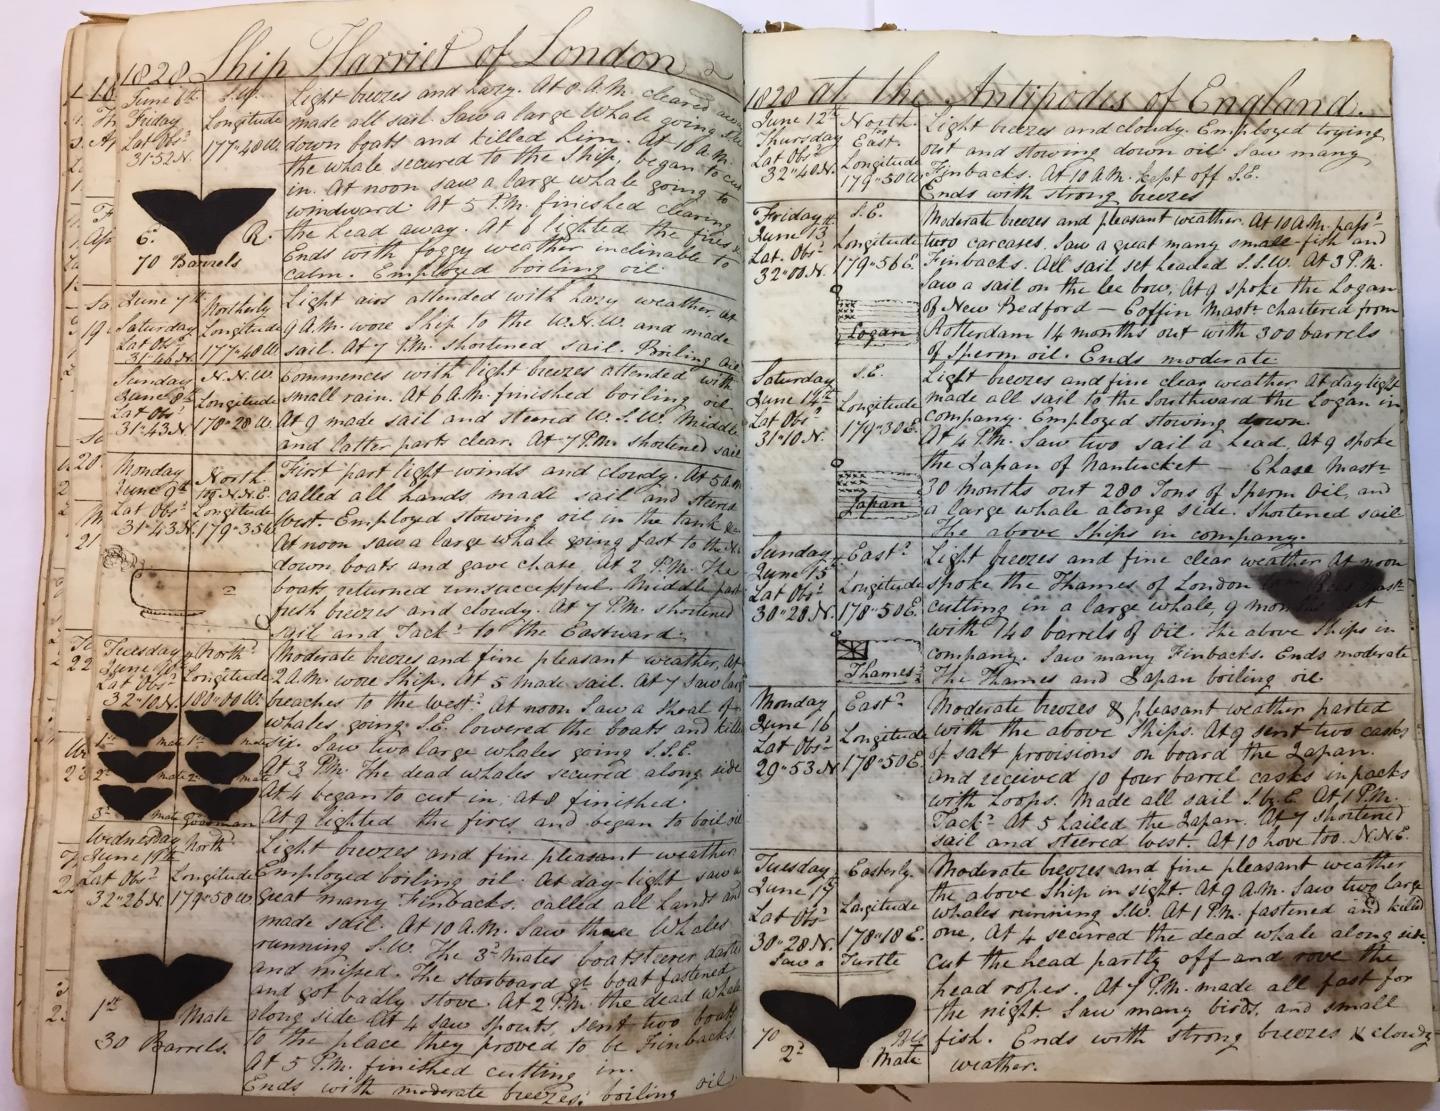 1828 Ship Harriet of London
June 6th S.W.
Friday Longitude
Lat Obs^d 177"48 W.
31"52 N
E. R.
70 Barrels
Light breezes and hazy. At 8 A.M. cleared away
made all sail Saw a large Whale going
down boats and killed him. At 10 A.M.
the whale secured to the Ship, began to cut
in. At noon saw a large whale going to
windward. At 5 P.M. finished clearing
the head away. At 6 lighted the fires &c
Ends with foggy weather inclinable to
calm. Employed boiling oil.
June 7th Northerly
Saturday Longitude
Lat Obs^d 177"40 W.
31"46 N
Light airs attended with hazy weather. At
9 A.M. wore Ship to the W.N.W. and made
sail. At 7 P.M. shortened sail. Boiling oil
Sunday N.N.W.
June 8th Longitude
Lat Obs^d 178"28 W.
31"43 N
Commences with light breezes attended with
small rain. At 6 A.M. finished boiling oil
At 9 made sail and steered W.S.W. Middle
and latter parts clear. At 7 P.M. shortened sail
Monday North
June 9th to N.N.E.
Lat Obs^d Longitude
31"43 N. 179"35 W
First part light winds and cloudy. At 5 A.M.
called all hands made sail and steered
West. Employed stowing oil in the tank &c
At noon saw a large whale going fast to the
down boats and gave chase, At 2 P.M. The
boats returned unsuccessful. Middle part
fresh breezes and cloudy. At 7 P.M. shortened
sail and Tack^d to the Eastward.
Tuesday North^d
June 10th Longitude
Lat Obs^d 180"00 W.
32"10 N.
1st mate 1st mate
2^d mate 2^d mate
3^d mate
Moderate breezes and fine pleasant weather, At
2 A.M. wore Ship. At 5 made sail. At 7 saw large
breaches to the West^d. At noon Saw a Shoal of
whales going S.E. lowered the boats and killed
six. Saw two large whales going S.S.E.
At 3 P.M. The dead whales secured along side
At 4 began to cut in, at 8 finished.
At 9 lighted the fires and began to boil oil
Wednesday North^d
June 11th
Lat Obs^d Longitude
32"26 N 179"58 W
1st Mate
30 Barrels.
Light breezes and fine pleasant weather
Employed boiling oil. At day light saw a
great many Finbacks. called all hands and
made sail. At 10 A.M. Saw three Whales
running S.W. The 3^d mates boatsteerer darted
and missed. The starboard boat fastened
and got badly stove. At 2 P.M. the dead whale
along side At 4 saw spouts, sent two boats
to the place they proved to be Finbacks.
At 5 P.M. finished cutting in.
Ends with moderate breezes, boiling oil
1828 at the Antipodes of England.
June 12th North.
Thursday East.
Lat Obs^d Longitude
32"40 N. 179"50 W
Light breezes and cloudy. Employed trying
out and stowing down oil. Saw many
Finbacks. At 10 A.M. kept off S.E.
Ends with strong breezes
Friday S.E.
June 13th Longitude
Lat. Obs^d 179"56 E.
32"00 N.
Logan
Moderate breezes and pleasant weather. At 10 A.M. pass^d
two carcases. Saw a great many small fish and
Finbacks. All sail set headed S.S.W. At 3 P.M.
Saw a sail on the lee bow, At 9 spoke the Logan
of New Bedford — Coffin Mast^r chartered from
Rotterdam 14 months out with 300 barrels
of Sperm oil. Ends moderate
Saturday S.E.
June 14th Longitude
Lat Obs^d 179"30 E.
31"10 N.
Japan
Light breezes and fine clear weather. At day light
made all sail to the Southward the Logan in
company. Employed stowing down
At 4 P.M. Saw two sail a head. At 9 spoke
the Japan of Nantucket — Chase Mast^r
30 months out 280 Tons of Sperm Oil, and
a large whale along side. Shortened sail
The above Ships in company.
Sunday East^d
June 15th Longitude
Lat Obs^d 178"50 E.
30"28 N.
Thames
Light breezes and fine clear weather At noon
spoke the Thames of London
cutting in a large whale, 9 months out
with 140 barrels of Oil. The above Ships in
company. Saw many Finbacks. Ends moderate
The Thames and Japan boiling oil
Monday East^d
June 16 Longitude
Lat Obs^d 178"50 E.
29"53 N
Moderate breezes & pleasant weather parted
with the above Ships. At 9 sent two casks
of salt provisions on board the Japan.
and received 10 four barrel casks in packs
with hoops. Made all sail S. by E. At 1 P.M.
Tack^d At 5 hailed the Japan. At 7 shortened
sail and steered west. At 10 hove too. N.N.E.
Tuesday Easterly
June 17th Longitude
Lat Obs^d 178"18 E.
30"28 N.
Saw a Turtle
70
2^d Mate
Moderate breezes and fine pleasant weather
the above Ship in sight. At 9 A.M. Saw two large
whales running S.W. At 1 P.M. fastened and killed
one, At 4 secured the dead whale along side.
cut the head partly off and rove the
head ropes. At 7 P.M. made all fast for
the night Saw many birds, and small
fish. Ends with strong breezes & cloudy
weather.